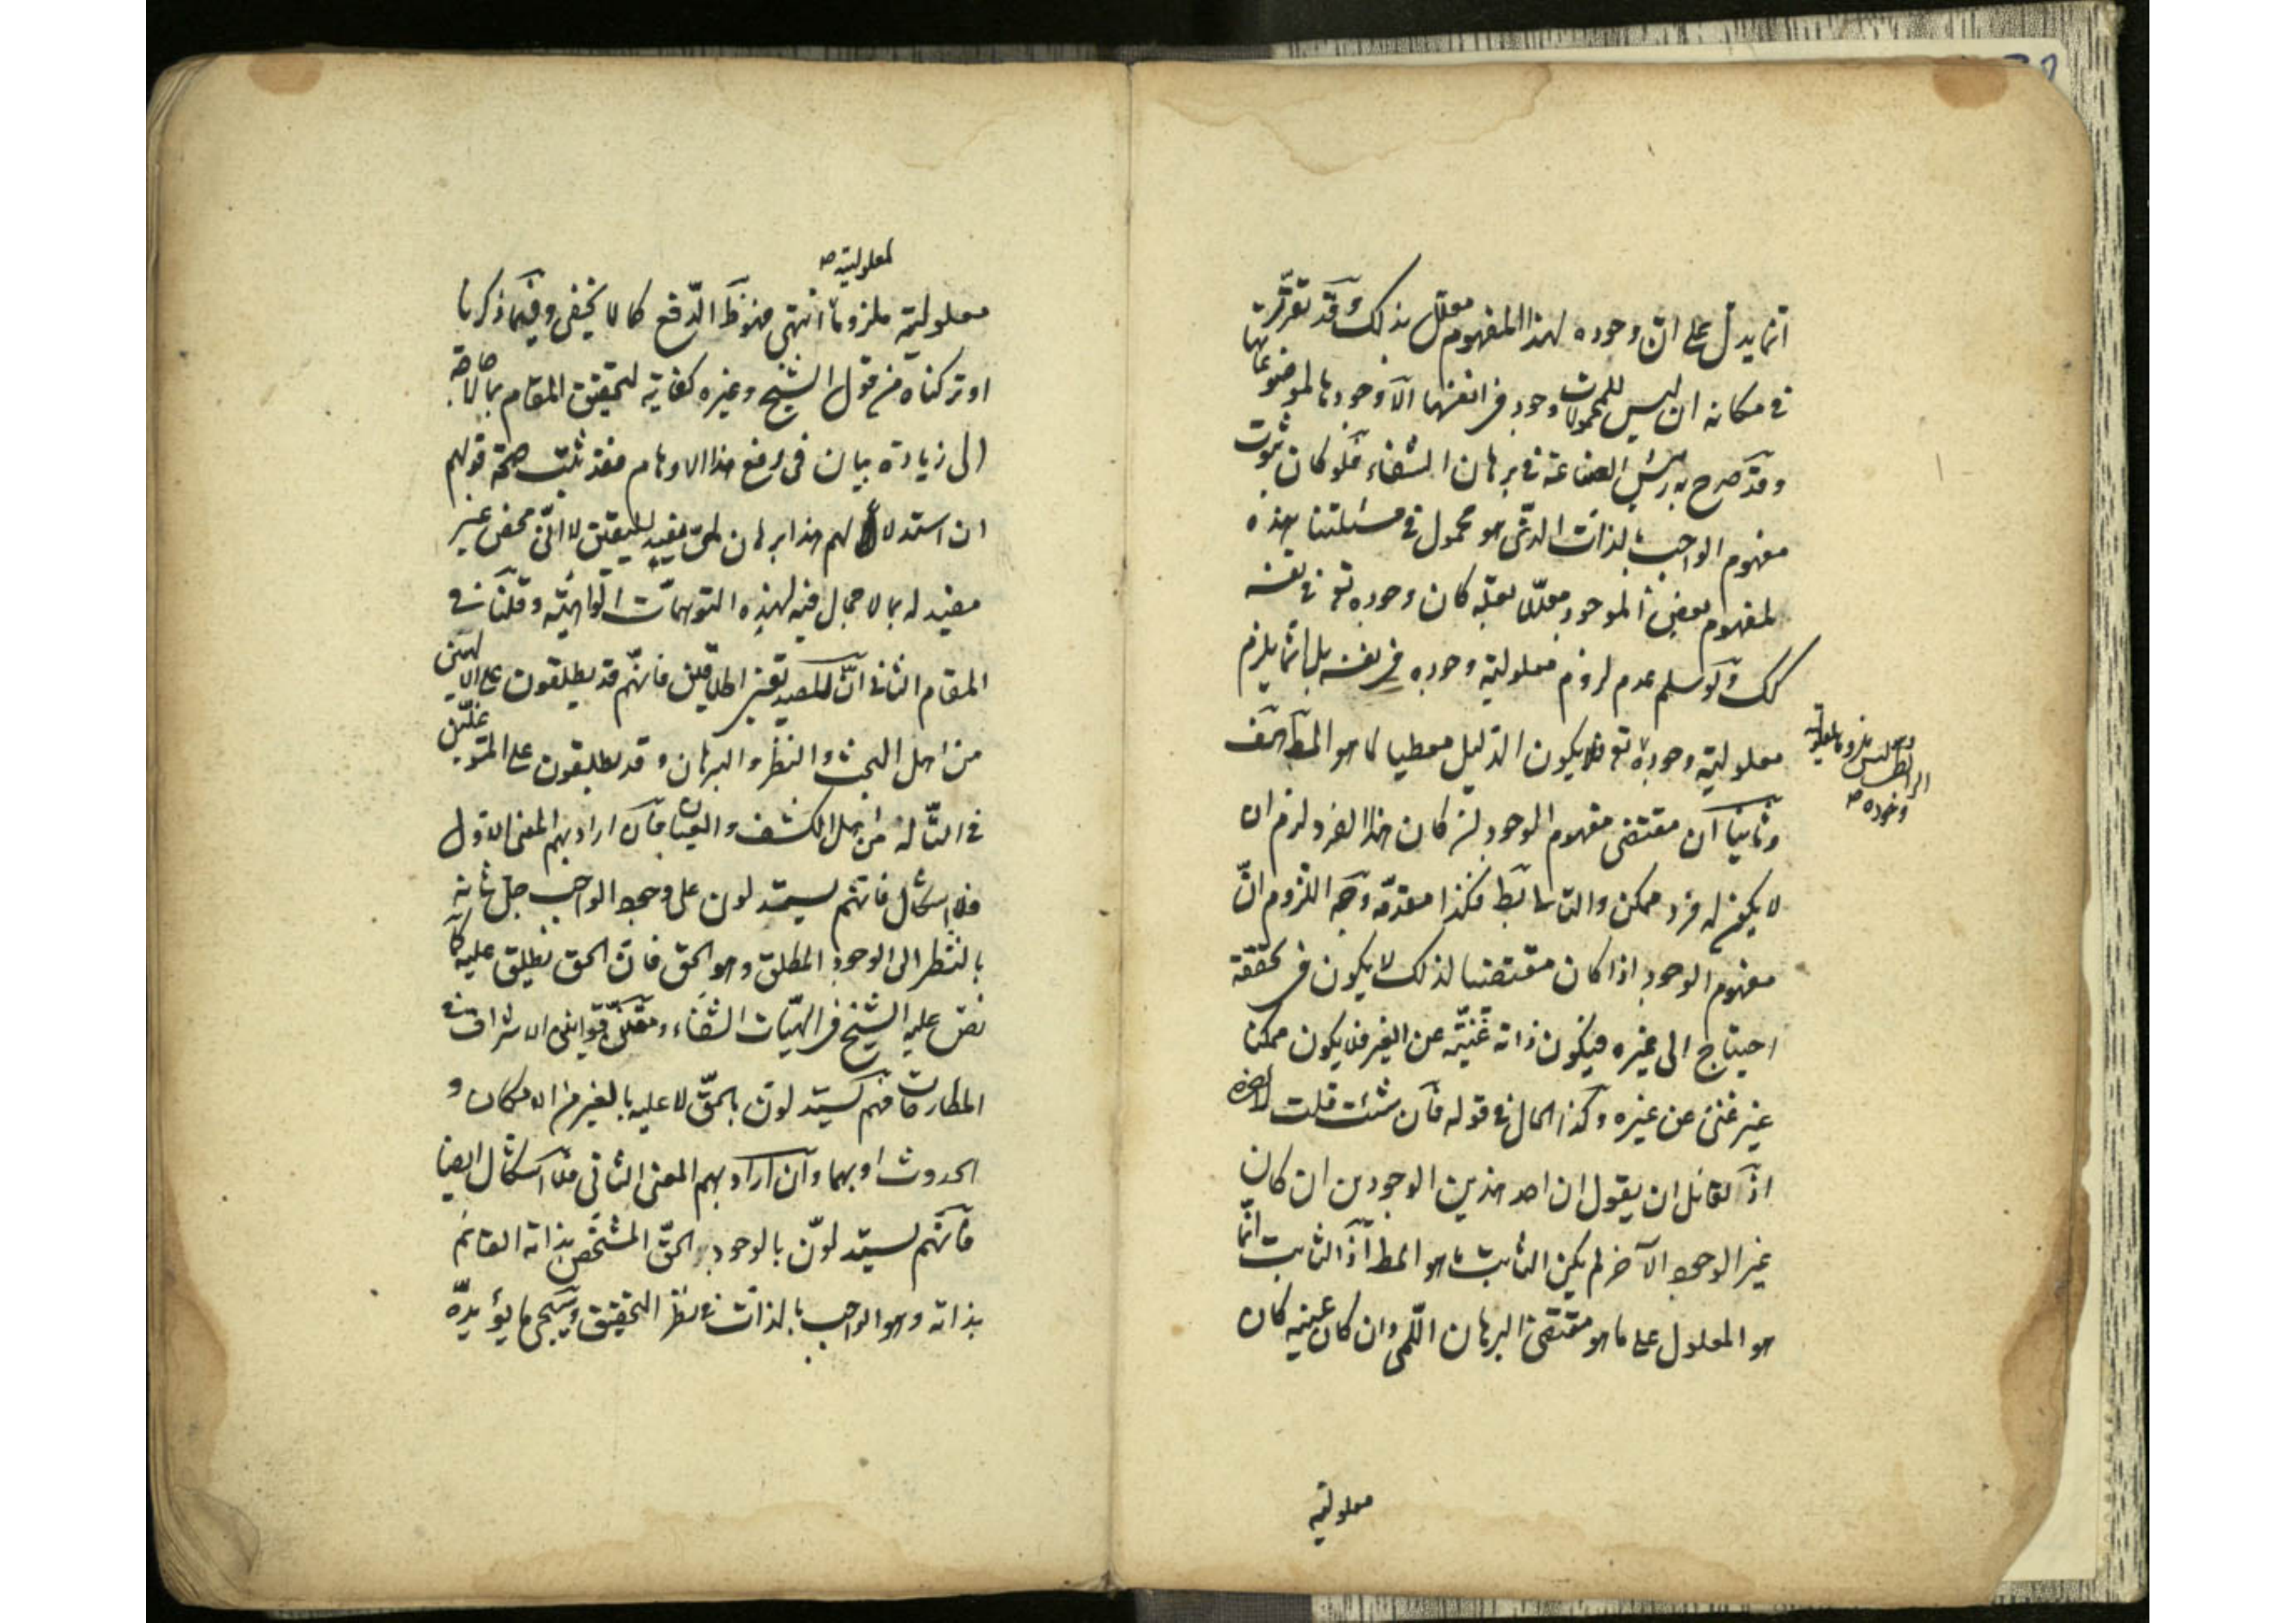 انما يدل على ان وجوده لهذا المفهوم معلل بذلك وقد تقررت
في مكانه ان ليس للمحمولات وجود في انفسها الا وجودها لموضوعاتها
وقد صرح به رئيس الصناعة في برهان الشفاء فلو كان ثبوت
مفهوم الواجب بالذات الذى هو محمول في مسئلتنا هذه
لمفهوم بعض الموجود معللا بعلة كان وجوده تع في نفسه
كك ولو سلم عدم لزوم معلولية وجوده في نفسه بل انما يلزم
معلولية وجوده تع فلا يكون الدليل معطيا لما هو المط هف
الرابطى وليس ملزوما لمعلولية
وجوده صح
وثانيا ان مقتضى مفهوم الوجود لئن كان هذا الفرد لزم ان
لا يكون له فرد ممكن والتالى بط فكذا مقدمه وجه اللزوم ان
مفهوم الوجود اذا كان مقتضيا لذلك لا يكون في تحققه
احتياج الى غيره فيكون ذاته غنية عن الغير فلا يكون ممكنا
غير غنى عن غيره وكذا الحال في قوله فان شئت قلت
اذ لقائل ان يقول ان احد هذين الوجودين ان كان
غير الوجود الآخر لم يكن الثابت ما هو المط اذ الثابت انما
هو المعلول على ما هو مقتضى البرهان اللمى وان كان عينه كان
معلولية
لمعلولية صح
معلولية ملزوما انتهى فهو ظ الدفع كما لا يخفى وفيما ذكرنا
او تركناه من قول الشيخ وغيره كفاية لتحقيق المقام بما لا حاجة
الى زيادة بيان في دفع هذا الاوهام فقد ثبت صحة قولهم
ان استدلالهم هذا برهان لمى مفيد لليقين لا انى محض غير
مفيد له بما لا مجال فيه لهذه التوهمات الواهية وقلنا في
المقام الثانى ان للصديقين اطلاقين فانهم قد يطلقون على الالهيين
من اهل البحث والنظر والبرهان وقد يطلقون على المتوغلين
في التأله من اهل الكشف والعيان فان اراد بهم المعنى الاول
فلا اشكال فانهم يستدلون على وجود الواجب جل شانه
بالنظر الى الوجود المطلق وهو الحق فان الحق يطلق عليه كما
نص عليه الشيخ في الهيات الشفاء ومقنن قوانين الاشراق في
المطارحات فهم يستدلون بالحق لا عليه بالغير من الامكان و
الحدوث او بهما وان اراد بهم المعنى الثانى فلا اشكال ايضا
فانهم يستدلون بالوجود الحق المتشخص بذاته القائم
بذاته وهو الواجب بالذات في نظر التحقيق وسيجى ما يؤيده